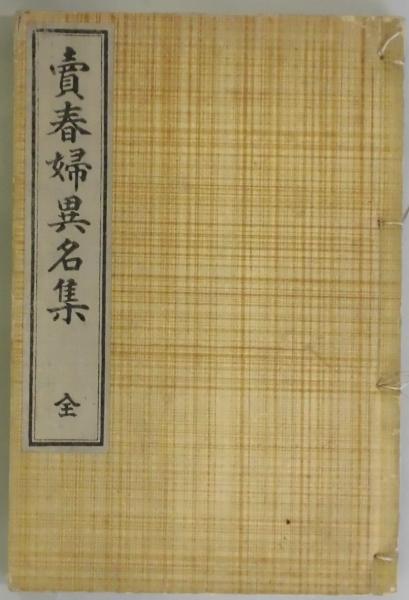 賣春婦異名集
全